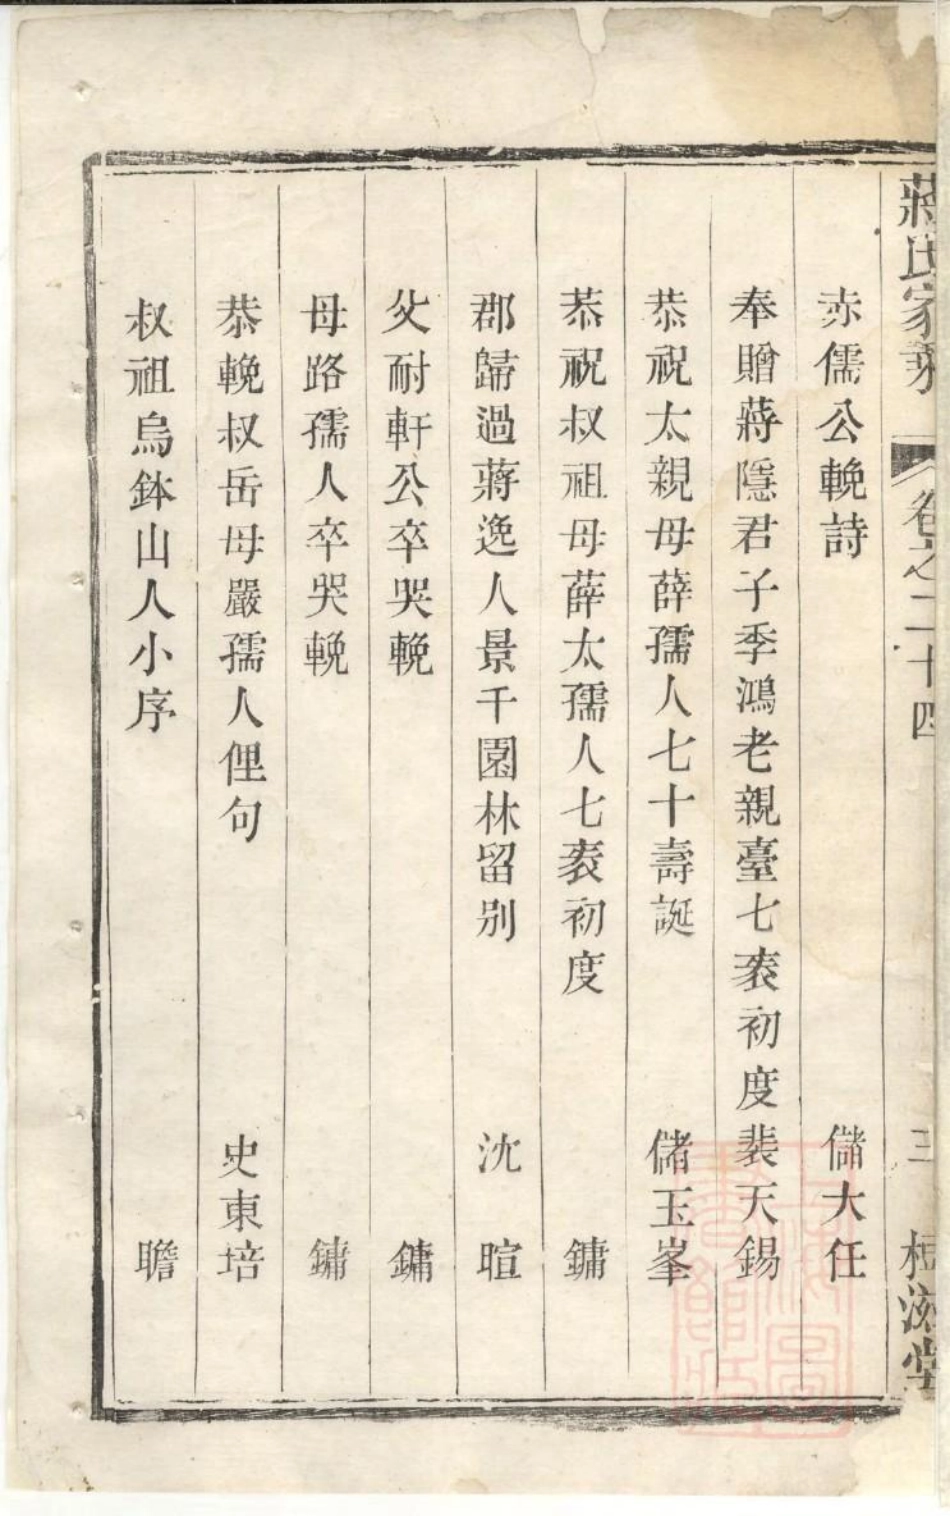 蔣氏家乘 卷之二十四 三
赤儒公輓詩 儲大任
奉贈蔣隱君子季鴻老親臺七袠初度 裴天錫
恭祝太親母薛孺人七十壽誕 儲玉峯
恭祝叔祖母薛太孺人七袠初度 鏞
郡歸過蔣逸人景千園林留別 沈暄
父耐軒公卒哭輓 鏞
母路孺人卒哭輓 鏞
恭輓叔岳母嚴孺人俚句 史東培
叔祖烏鉢山人小序 瞻